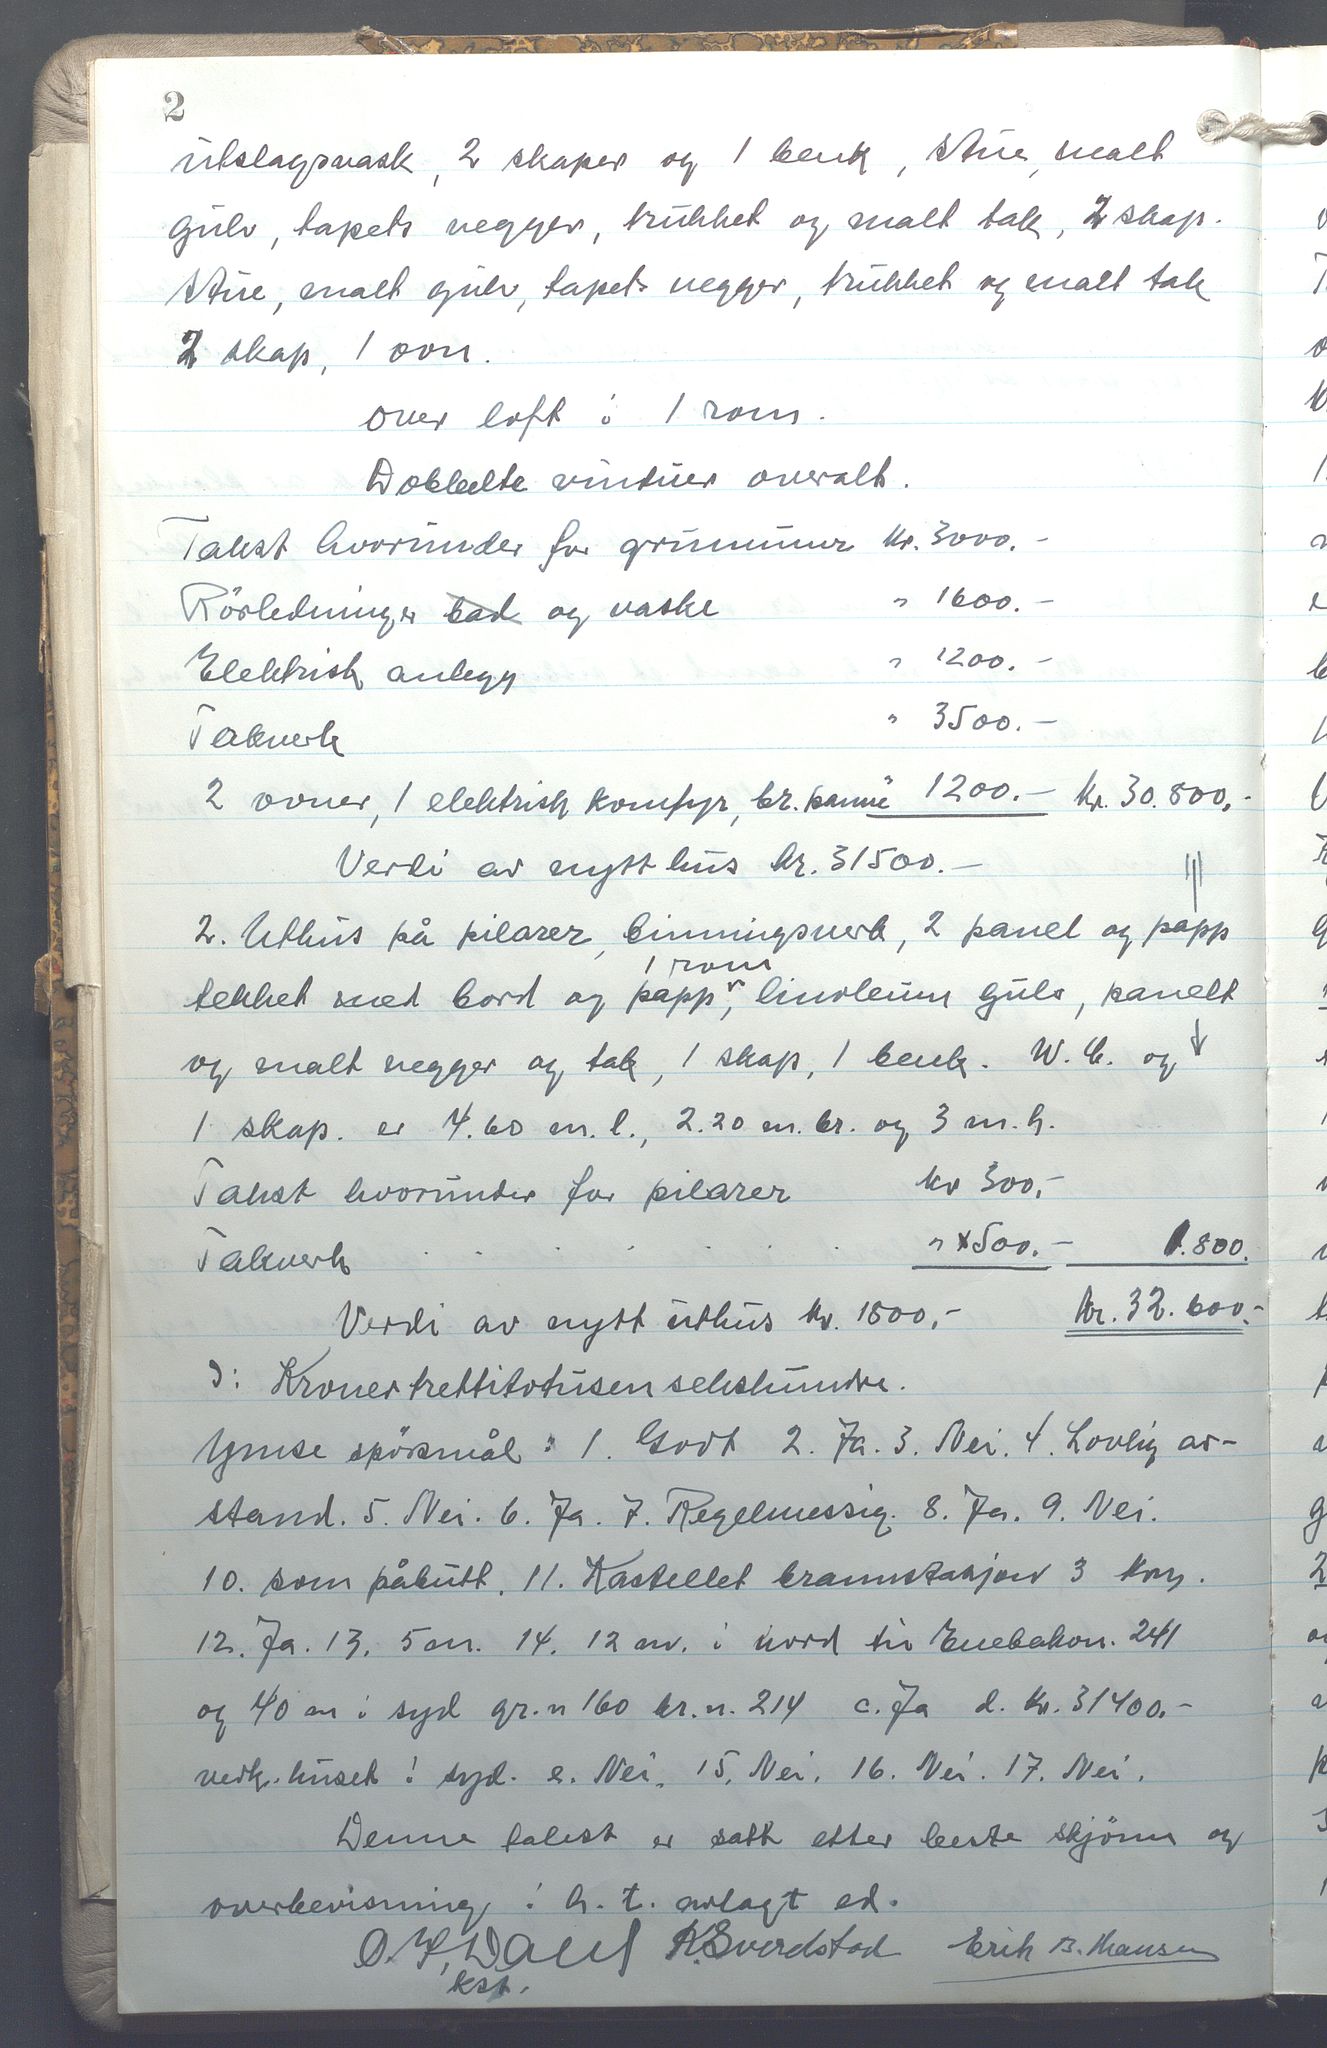 2
utslagsvask, 2 skaper og 1 benk, stue, malt
gulv, tapets vegger, trukket og malt tak, 2 skap.
Stue, malt gulv, tapets vegger, trukket og malt tak
2 skap, 1 ovn.
over loft i 1 rom.
Dobbelte vinduer overalt.
Takst hvorunder for grunnmur kr. 3000.-
Rörledninger bad og vaske " 1600.-
Elektrisk anlegg " 1200.-
Takverk " 3500.-
2 ovner, 1 elektrisk komfyr, br. panne " 1200.- kr. 30.800,-
Verdi av nytt hus kr. 31500.-
2. Uthus på pilarer, binningsverk, 2 panel og papp
1 rom
tekket med bord og papp, linoleum gulv, panelt
og malt vegger og tak, 1 skap, 1 benk. W.C. og
1 skap. er 4.60 m. l., 2.20 m. br. og 3 m. h.
Takst hvorunder for pilarer kr 300,-
Takverk . . . . . . . " 500.- 1.800.
Verdi av nytt uthus kr. 1800,- kr. 32.600.-
ɔ: Kroner trettitotusen sekshundre.
Ymse spörsmål: 1. Godt 2. Ja. 3. Nei. 4. Lovlig av-
stand. 5. Nei. 6. Ja. 7. Regelmessig. 8. Ja. 9. Nei.
10. som påbutt. 11. Kastellet brannstasjon 3 km.
12. Ja. 13. 5 m. 14. 12 m. i nord til Enebakvn. 241
og 40 m i syd gr. n 160 br. n. 214 c. Ja d. kr. 31400.-
verk. huset i syd. e. Nei. 15. Nei. 16. Nei. 17. Nei.
Denne takst er satt etter beste skjönn og
overbevisning i h. t. avlagt ed.
K. Sverdstad Erik B. Hansen
kst.